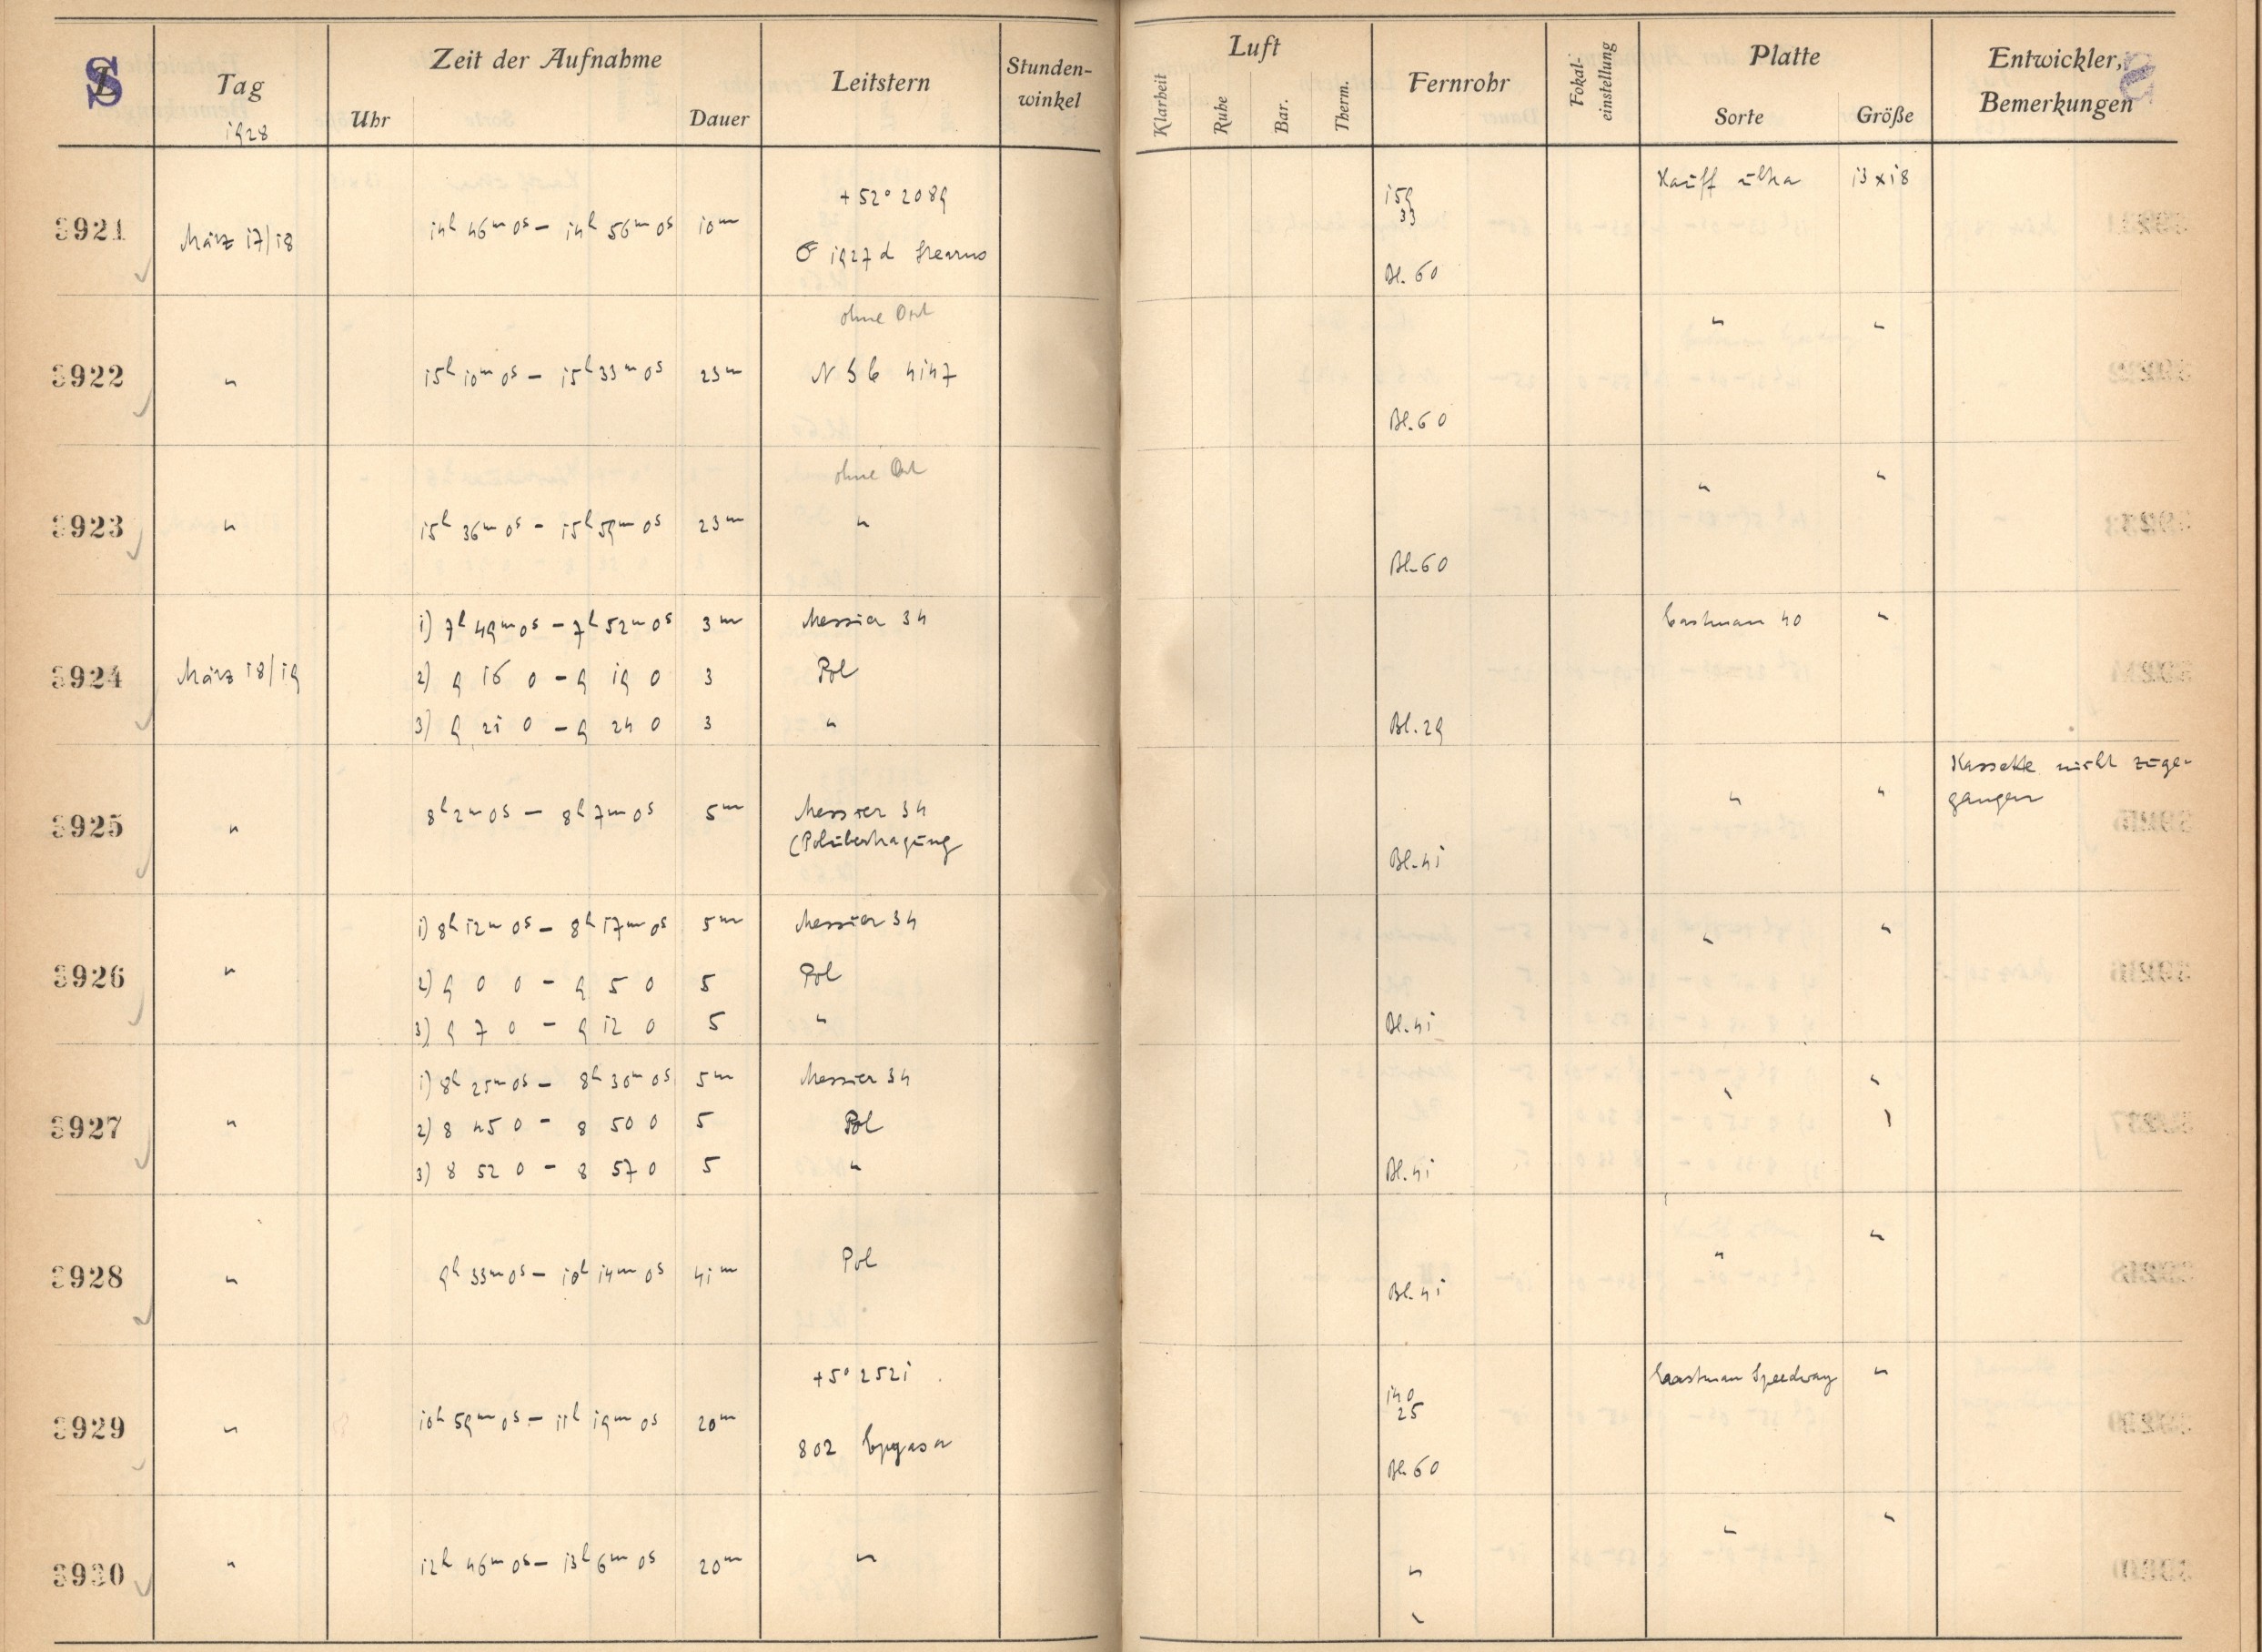 S
Tag
1928
Zeit der Aufnahme
Uhr
Dauer
Leitstern
Stunden-
winkel
Luft
Klarheit
Ruhe
Bar.
Therm.
Fernrohr
Fokal-
einstellung
Platte
Sorte
Größe
Entwickler,
Bemerkungen
3921
März 17/18
14h 46m 0s – 14h 56m 0s
10m
+52° 2089
1927 d Stearns
159
33
Bl. 60
Hauff ultra
13x18
3922
"
15h 10m 0s – 15h 33m 0s
23m
ohne Ort
N G C 4147
Bl. 60
"
"
3923
"
15h 36m 0s – 15h 59m 0s
23m
ohne Ort
"
Bl. 60
"
"
3924
März 18/19
1) 7h 49m 0s – 7h 52m 0s 3m Messier 34
2) 9 16 0 – 9 19 0 3 Pol
3) 9 21 0 – 9 24 0 3 "
Bl. 29
Eastman 40
"
3925
"
8h 2m 0s – 8h 7m 0s
5m
Messier 34
(Polübertragung
Bl. 41
"
"
Kassette nicht zuge-
gangen
3926
"
1) 8h 12m 0s – 8h 17m 0s 5m Messier 34
2) 9 0 0 – 9 5 0 5 Pol
3) 9 7 0 – 9 12 0 5 "
Bl. 41
"
"
3927
"
1) 8h 25m 0s – 8h 30m 0s 5m Messier 34
2) 8 45 0 – 8 50 0 5 Pol
3) 8 52 0 – 8 57 0 5 "
Bl. 41
"
"
3928
"
9h 33m 0s – 10h 14m 0s
41m
Pol
Bl. 41
"
"
3929
"
10h 59m 0s – 11h 19m 0s
20m
+5° 2521
802 Epyaxa
140
25
Bl. 60
Eastman Speedway
"
3930
"
12h 46m 0s – 13h 6m 0s
20m
"
"
"
"
"